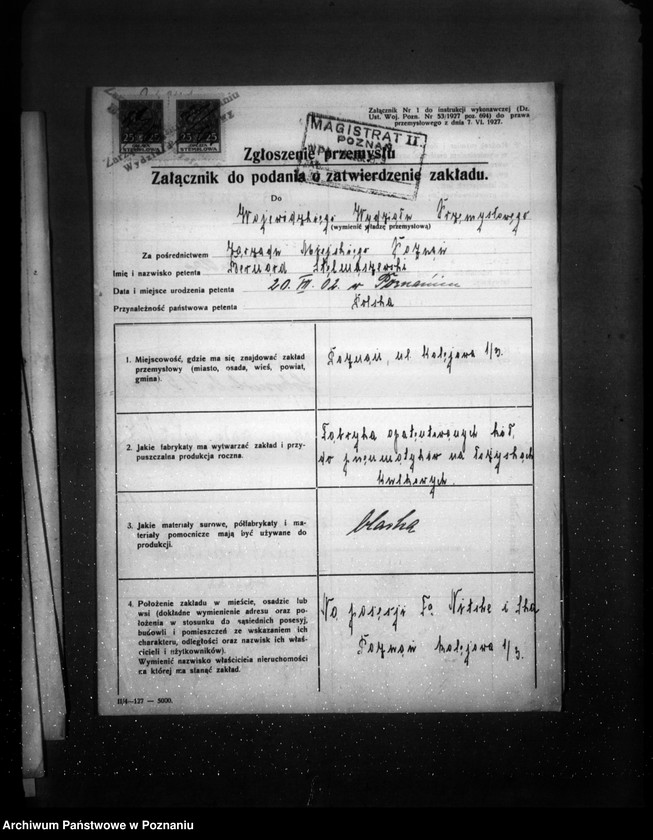 Załącznik Nr 1 do instrukcji wykonawczej (Dz.
Ust. Woj. Pozn. Nr 53/1927 poz. 694) do prawa
przemysłowego z dnia 7. VI. 1927.
25 25
OPŁATA
STEMPLOWA
25 25
OPŁATA
STEMPLOWA
MAGISTRAT II.
POZNAŃ
Zgłoszenie przemysłu
Załącznik do podania o zatwierdzenie zakładu.
Do
Wojewódzkiego Wydziału Przemysłowego
(wymienić władzę przemysłową)
Za pośrednictwem Zarządu Miejskiego Poznań
Imię i nazwisko petenta Bernard Stelmaszewski
Data i miejsce urodzenia petenta 20. VI. 02. w Poznaniu
Przynależność państwowa petenta Polska
1. Miejscowość, gdzie ma się znajdować zakład
przemysłowy (miasto, osada, wieś, powiat,
gmina).
Poznań, ul. Kolejowa 1/3.
2. Jakie fabrykaty ma wytwarzać zakład i przy-
puszczalna produkcja roczna.
Fabryka opatentowanych kół,
do pneumatyków na łożyskach
kulkowych.
3. Jakie materiały surowe, półfabrykaty i ma-
teriały pomocnicze mają być używane do
produkcji.
blacha
4. Położenie zakładu w mieście, osadzie lub
wsi (dokładne wymienienie adresu oraz po-
łożenia w stosunku do sąsiednich posesyj,
budowli i pomieszczeń ze wskazaniem ich
charakteru, odległości oraz nazwisk ich właś-
cicieli i użytkowników).
Wymienić nazwisko właściciela nieruchomości
na której ma stanąć zakład.
Na posesji Fa Nitsche i Ska
Poznań Kolejowa 1/3.
II/4—127 — 5000.
Archiwum Państwowe w Poznaniu